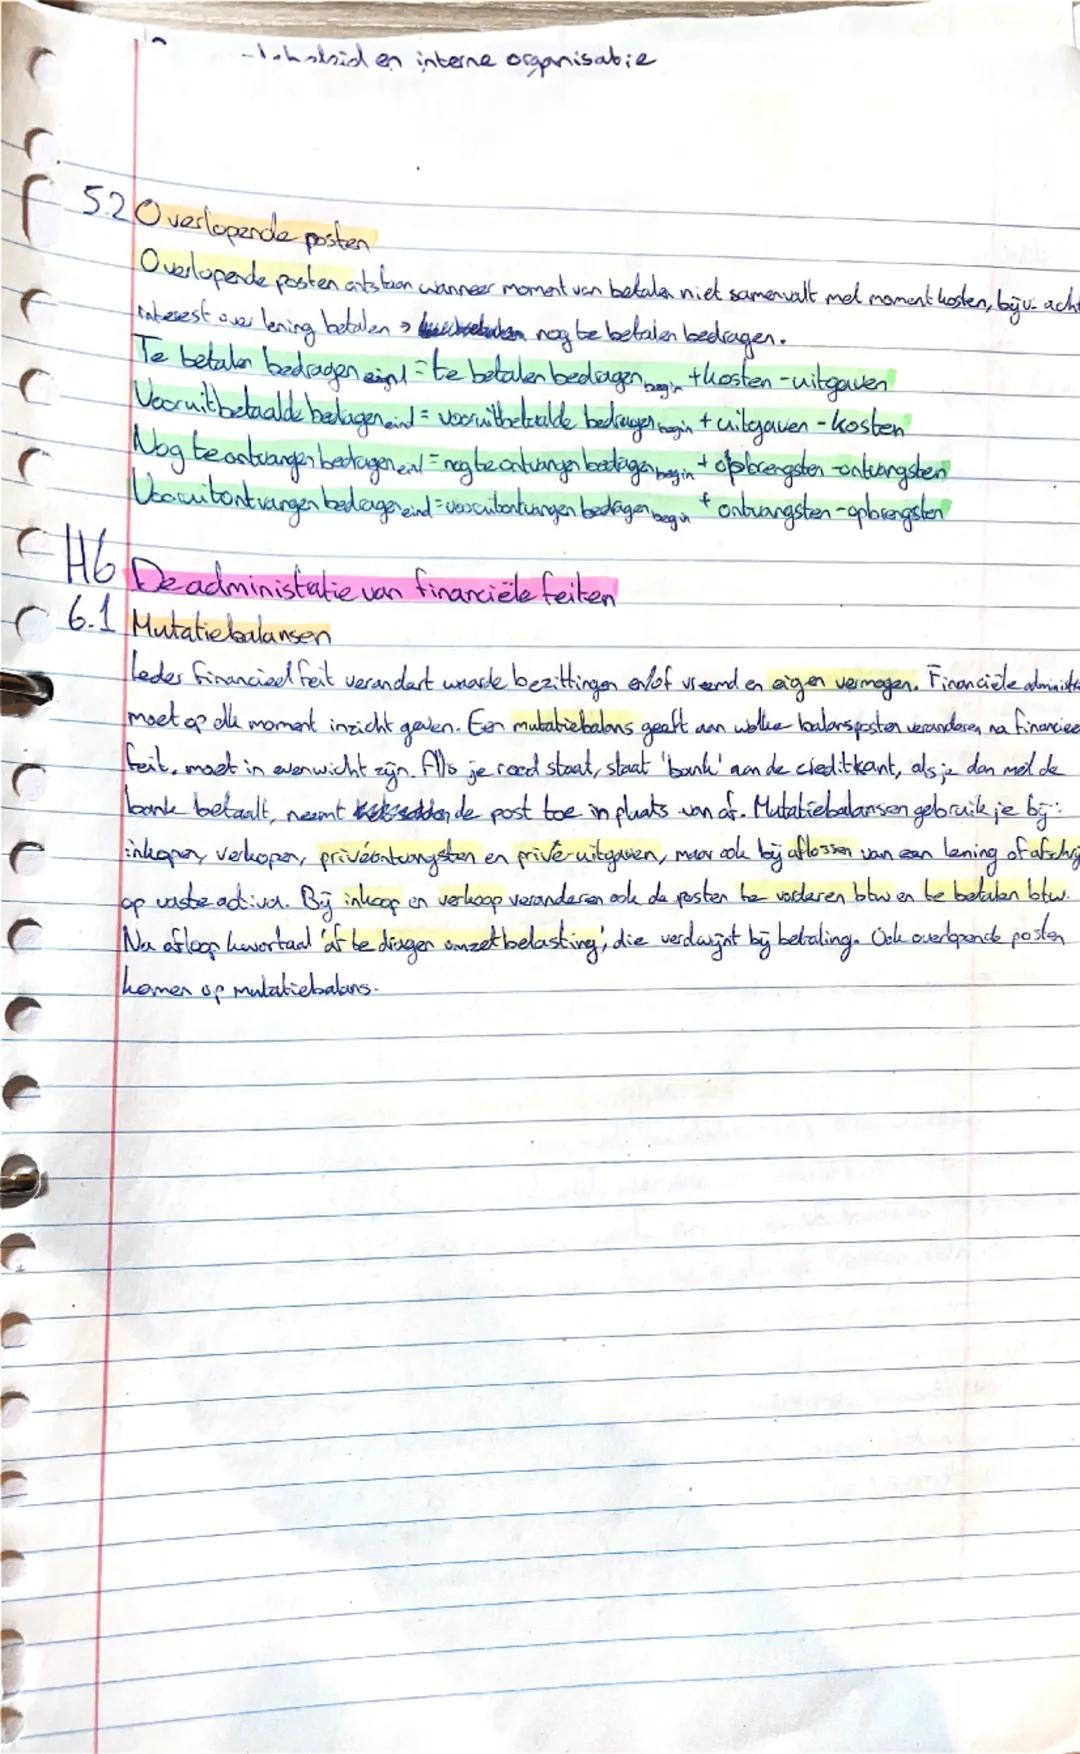 en interne organisatie
5.2 Overlopende posten
Overlopende posten ontstaan wanneer moment van betalen niet samenvalt met moment kosten, bijv. acht
interest over lening betalen → nog te betalen bedragen.
Te betalen bedragen eind = te betalen bedragen begin + kosten - uitgaven
Vooruitbetaalde bedragen eind = vooruitbetaalde bedragen begin + uitgaven - kosten
Nog te ontvangen bedragen eind = nog te ontvangen bedragen begin + opbrengsten - ontvangsten
Vooruitontvangen bedragen eind = vooruitontvangen bedragen begin + ontvangsten - opbrengsten
H6 De administratie van financiële feiten
6.1 Mutatiebalansen
Ieder financieel feit verandert waarde bezittingen en/of vreemd en eigen vermogen. Financiële administra
moet op elk moment inzicht geven. Een mutatiebalans geeft aan welke balansposten veranderen na financiee
feit, moet in evenwicht zijn. Als je rood staat, staat 'bank' aan de creditkant, als je dan met de
bank betaalt, neemt de post toe in plaats van af. Mutatiebalansen gebruik je bij:
inkopen, verkopen, privéontvangsten en privé-uitgaven, maar ook bij aflossen van een lening of afschrij
op vaste activa. Bij inkoop en verkoop veranderen ook de posten te vorderen btw en te betalen btw.
Na afloop kwartaal 'af te dragen omzetbelasting', die verdwijnt bij betaling. Ook overlopende posten
komen op mutatiebalans.